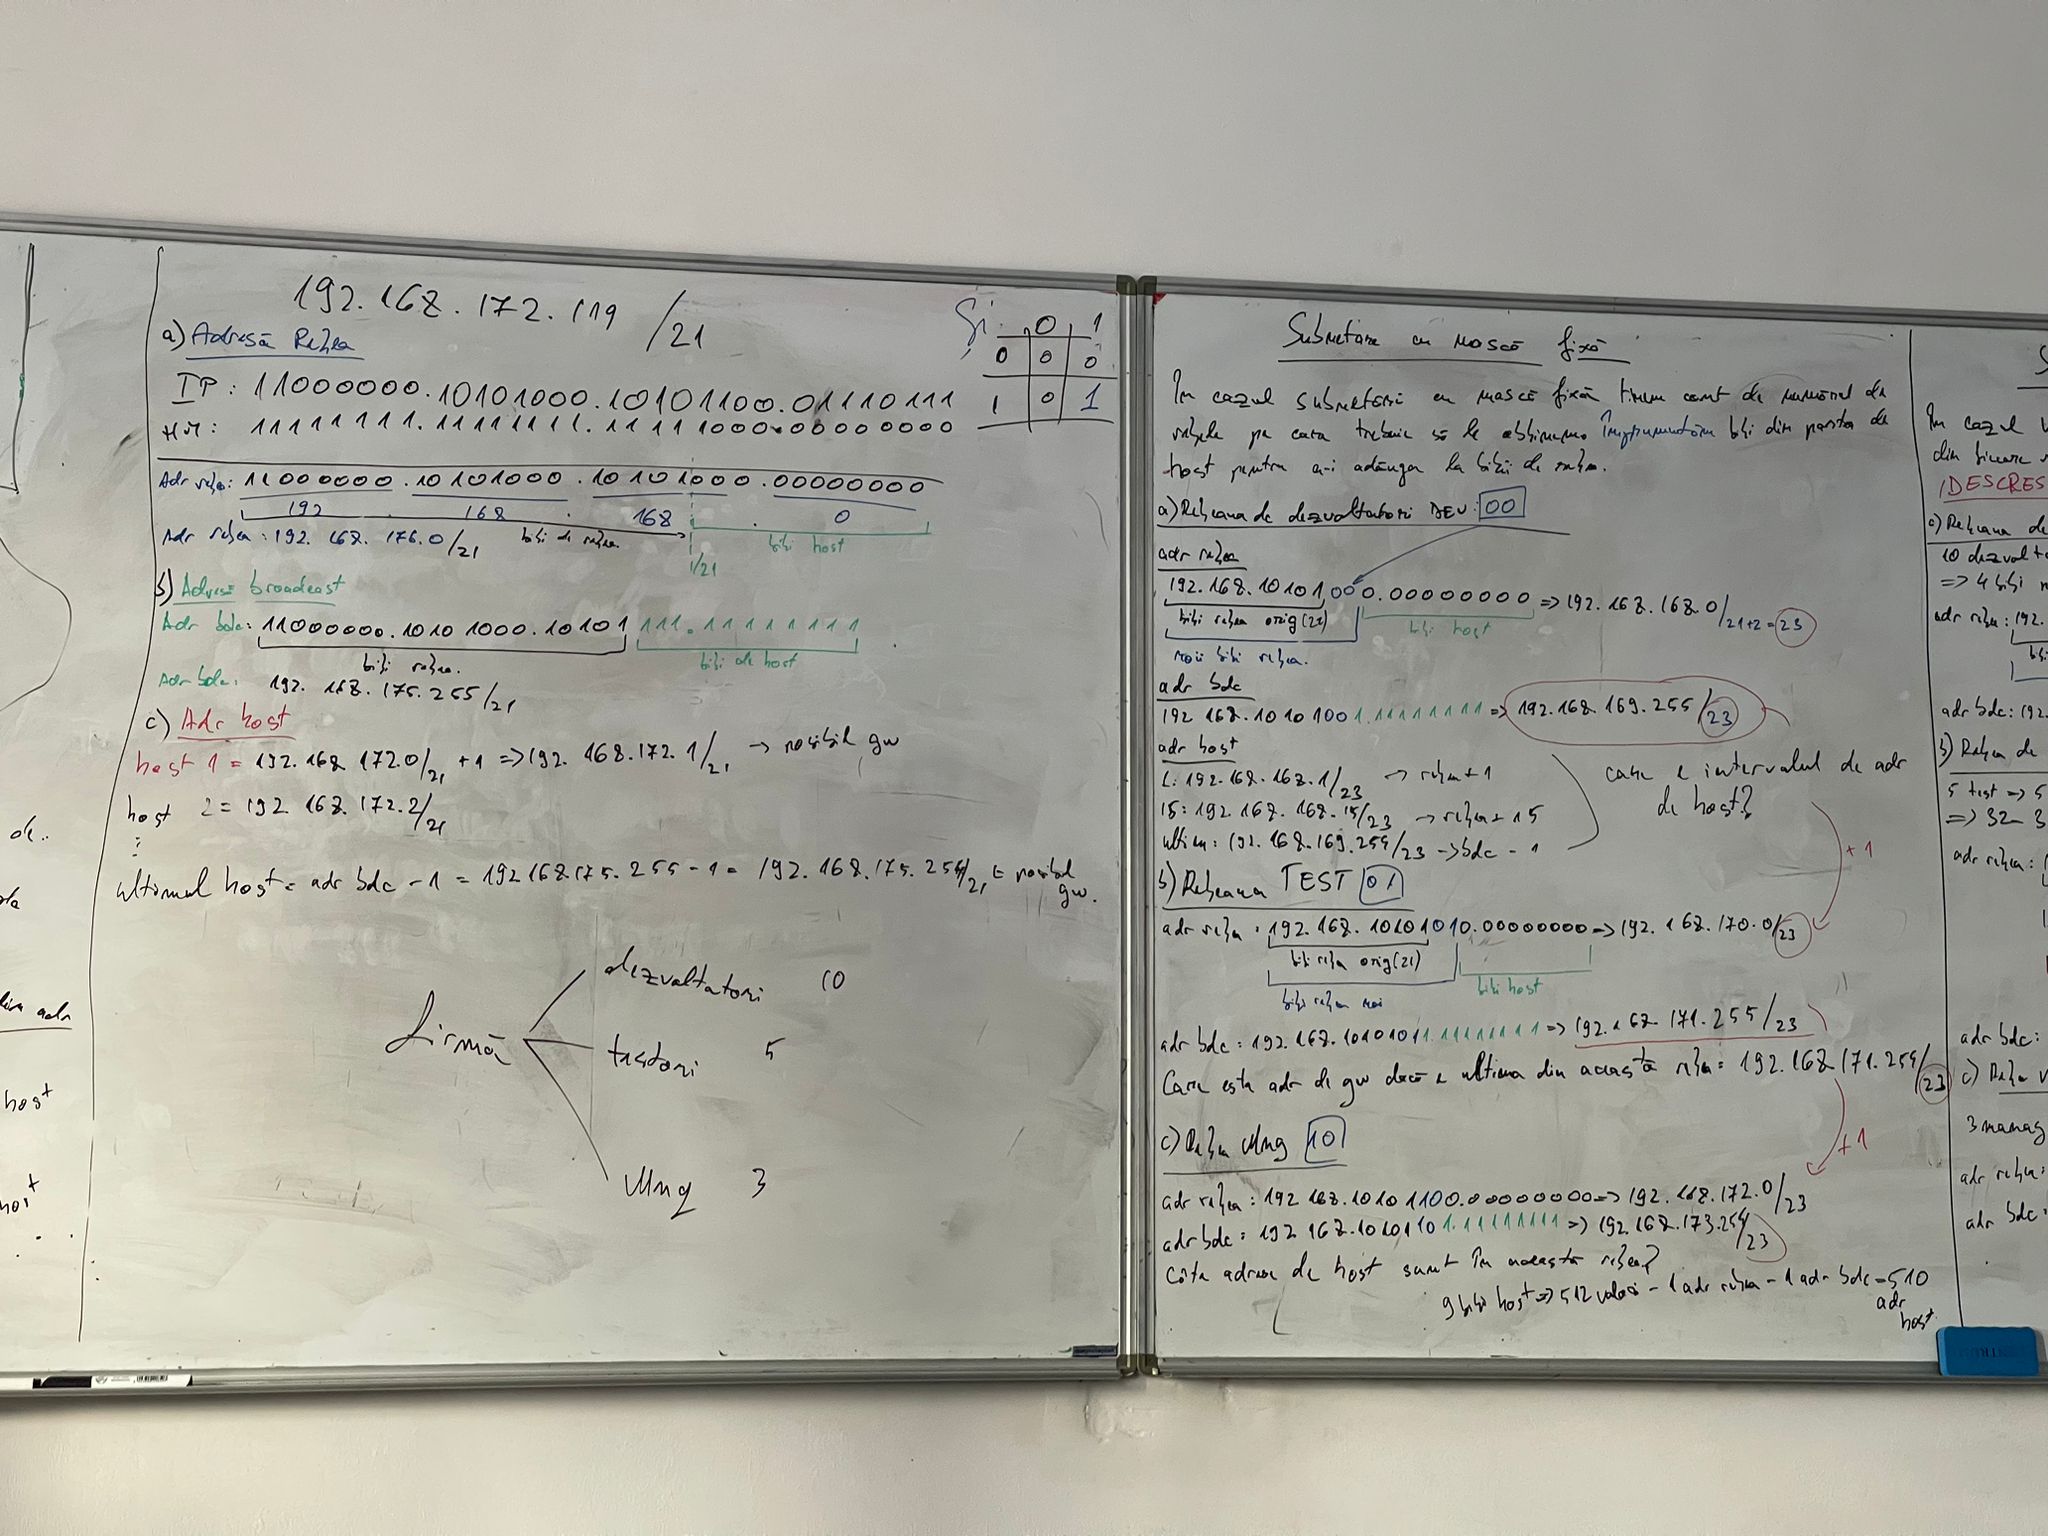 192.168.172.119 /21
Și
0 1
0 0 0
1 0 1
a) Adresă Rețea
IP: 11000000.10101000.10101100.01110111
HM: 11111111.11111111.11111000.00000000
Adr rețea: 11000000.10101000.10101000.00000000
192 . 168 . 168 . 0
biți de rețea
biți host
/21
Adr rețea: 192.168.176.0/21
b) Adresă broadcast
Adr bdc: 11000000.10101000.10101 111.11111111
biți rețea.
biți de host
Adr bdc: 192.168.175.255/21
c) Adr host
host 1 = 192.168.172.0/21 +1 => 192.168.172.1/21 → posibil gw
host 2 = 192.168.172.2/21
ultimul host = adr bdc - 1 = 192.168.175.255 - 1 = 192.168.175.254/21 = posibil gw.
firmă
dezvoltatori 10
testori 5
Mng 3
ok..
adr
host
host
Subnetare cu mască fixă
În cazul subnetării cu mască fixă ținem cont de numărul de
rețele pe care trebuie să le obținem. Împrumutăm biți din partea de
host pentru a-i adăuga la biții de rețea.
a) Rețeaua de dezvoltatori DEV: 00
adr rețea
192.168.10101000.00000000 => 192.168.168.0/21+2=23
biți rețea orig(21)
biți host
noii biți rețea.
adr bdc
192.168.10101001.11111111 => 192.168.169.255/23
adr host
1: 192.168.168.1/23 → rețea+1
15: 192.168.168.15/23 → rețea+15
ultim: 192.168.169.254/23 → bdc - 1
care e intervalul de adr
de host?
+1
b) Rețeaua TEST 01
adr rețea: 192.168.10101010.00000000 => 192.168.170.0/23
biți rețea orig(21)
biți host
biți rețea noi
adr bdc: 192.168.10101011.11111111 => 192.168.171.255/23
Care este adr de gw dacă e ultima din această rețea: 192.168.171.254/23
+1
c) Rețea Mng 10
adr rețea: 192.168.10101100.00000000 => 192.168.172.0/23
adr bdc: 192.168.10101101.11111111 => 192.168.173.254/23
Câte adrese de host sunt în această rețea?
9 biți host => 512 valori - 1 adr rețea - 1 adr bdc = 510
adr
host
În cazul
din fiecare
(DESCRES
a) Rețeaua de
10 dezvolt
=> 4 biți
adr rețea: 192.
adr bdc: 192.
b) Rețea de
5 test => 5
=> 32-3
adr rețea:
adr bdc:
c) Rețea
3 manag
adr rețea:
adr bdc: